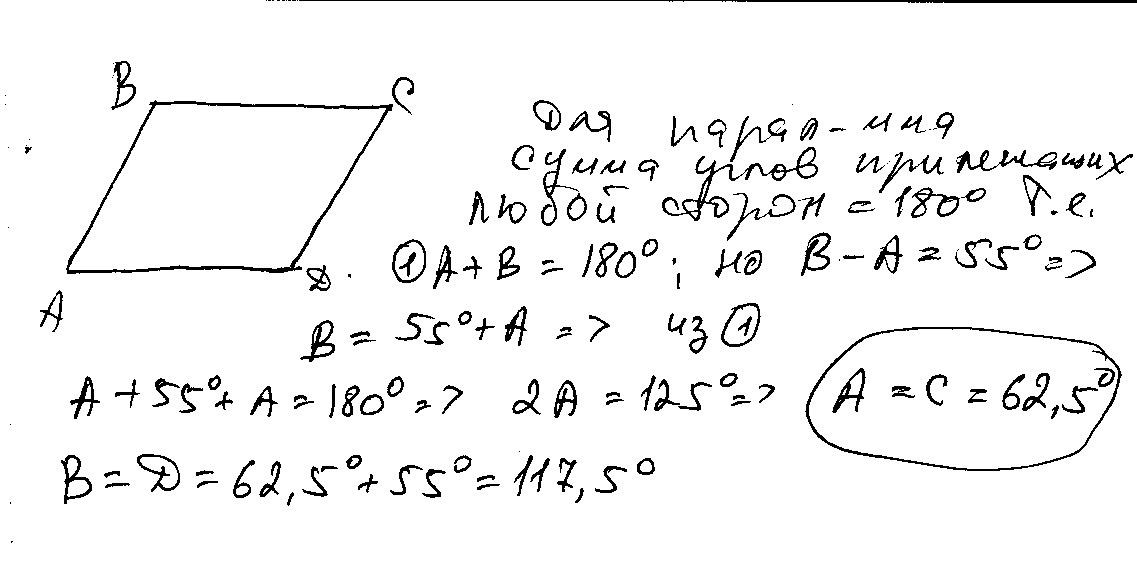 B C
Для парал-мма
сумма углов прилежащих
любой сторон = 180° т.е.
A D. ① A + B = 180°; но B - A = 55° =>
B = 55° + A => из ①
A + 55° + A = 180° => 2A = 125° => A = C = 62,5°
B = D = 62,5° + 55° = 117,5°